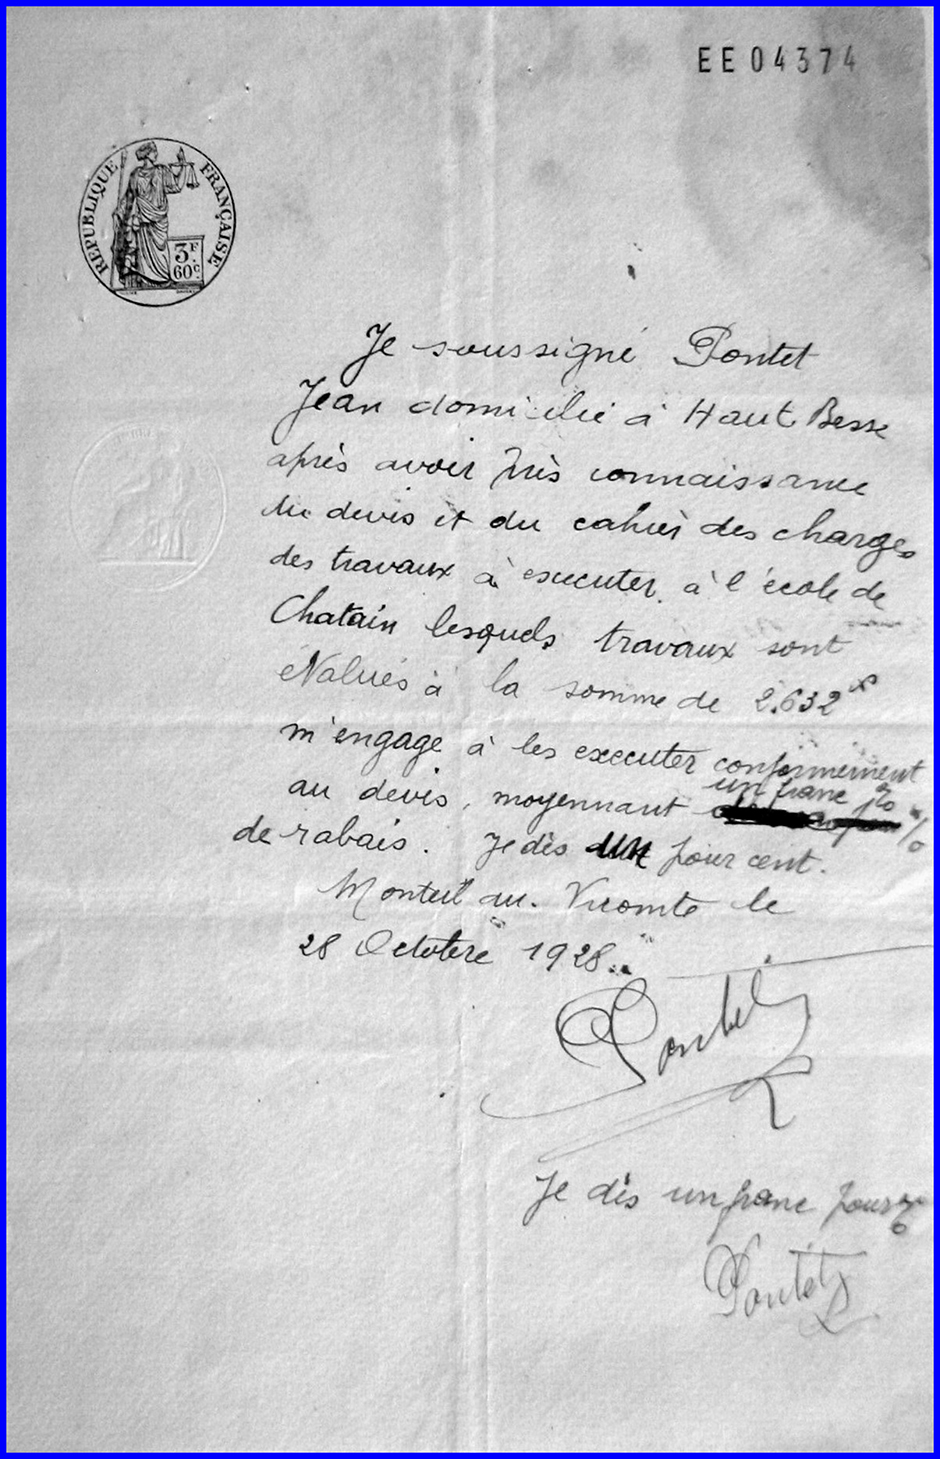 EE04374
RÉPUBLIQUE FRANÇAISE
3F
60c.
Je soussigné Pontet
Jean domicilié à Haut Besse
après avoir pris connaissance
du devis et du cahier des charges
des travaux à executer à l'école de
Chatain lesquels travaux sont
évalués à la somme de 2.632
m'engage à les executer conformément
un franc
au devis, moyennant %
de rabais. Je dis un pour cent.
Monteil au Vicomte le
28 Octobre 1928
Pontet
Je dis un franc pour %
Pontet